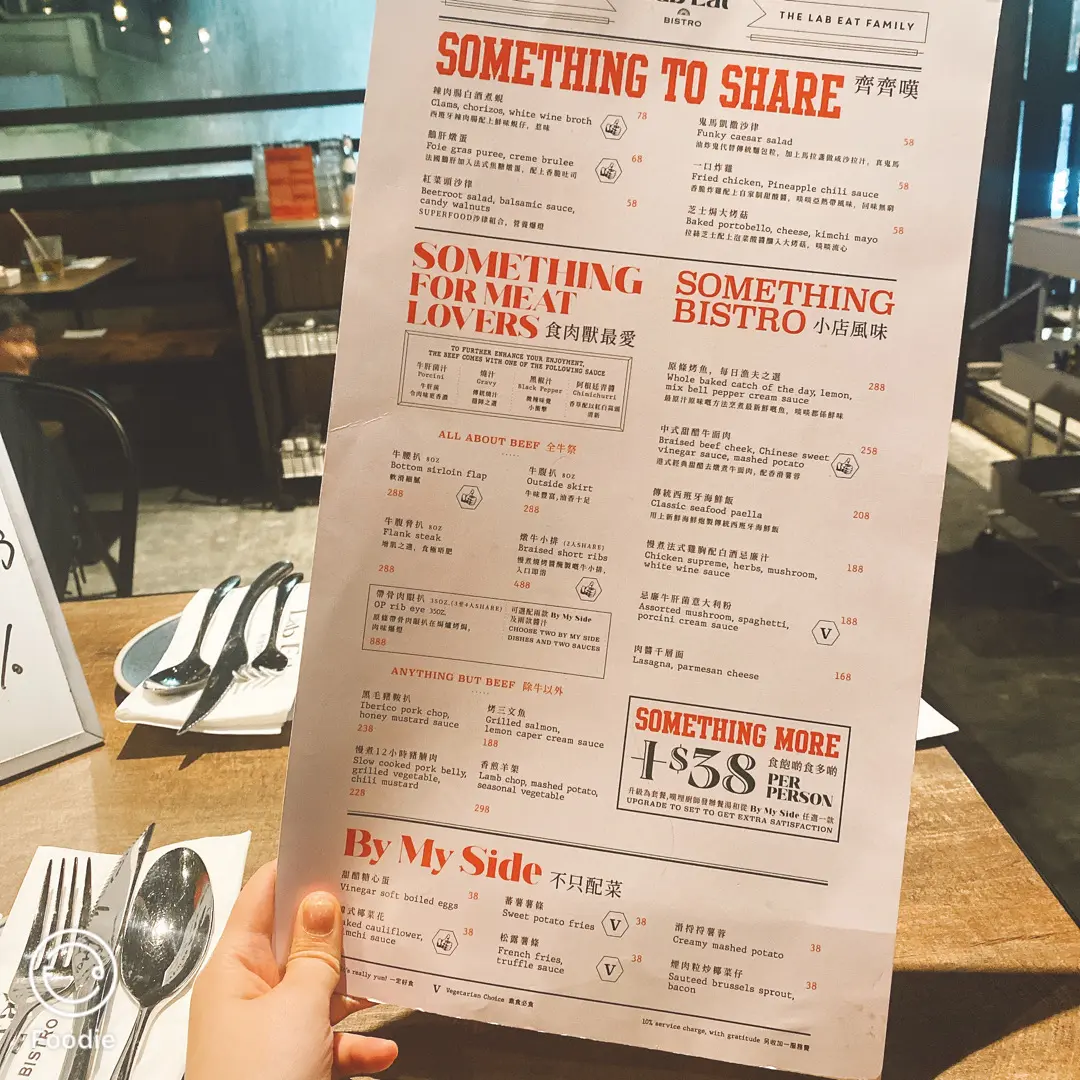 BISTRO
THE LAB EAT FAMILY
SOMETHING TO SHARE 齊齊嘆
辣肉腸白酒煮蜆
Clams, chorizos, white wine broth 78
西班牙辣肉腸配上鮮味蜆仔，惹味
鵝肝燉蛋
Foie gras puree, creme brulee 68
法國鵝肝加入法式焦糖燉蛋，配上香脆吐司
紅菜頭沙律
Beetroot salad, balsamic sauce, 58
candy walnuts
SUPERFOOD沙律組合，營養爆燈
鬼馬凱撒沙律
Funky caesar salad 58
油炸鬼代替傳統麵包粒，加上馬拉盞做咸沙拉汁，真鬼馬
一口炸雞
Fried chicken, Pineapple chili sauce 58
香脆炸雞配上自家製甜酸醬，啖啖亞熱帶風味，回味無窮
芝士焗大烤菇
Baked portobello, cheese, kimchi mayo 58
拉絲芝士配上泡菜醬釀入大烤菇，啖啖流心
SOMETHING
FOR MEAT
LOVERS 食肉獸最愛
TO FURTHER ENHANCE YOUR ENJOYMENT,
THE BEEF COMES WITH ONE OF THE FOLLOWING SAUCE
牛肝菌汁
Porcini
牛肝菌
令肉味更香濃
燒汁
Gravy
傳統燒汁
隨師之選
黑椒汁
Black Pepper
微辣味覺
小衝擊
阿根廷青醬
Chimichurri
香草配以紅白蒜頭
清新
ALL ABOUT BEEF 全牛祭
牛腰扒 8OZ
Bottom sirloin flap
軟滑細膩
288
牛腹扒 8OZ
Outside skirt
牛味豐富，油香十足
288
牛腹脅扒 8OZ
Flank steak
增肌之選，食極唔肥
288
燉牛小排 (2人SHARE)
Braised short ribs
慢煮燒烤醬醃製嘅牛小排，
入口即溶
488
帶骨肉眼扒 35OZ.(3至4人SHARE)
OP rib eye 35OZ.
原條帶骨肉眼扒在焗爐烤焗，
肉味爆燈
888
可選配兩款 By My Side
及兩款醬汁
CHOOSE TWO BY MY SIDE
DISHES AND TWO SAUCES
ANYTHING BUT BEEF 除牛以外
黑毛豬鞍扒
Iberico pork chop,
honey mustard sauce
238
烤三文魚
Grilled salmon,
lemon caper cream sauce
188
慢煮12小時豬腩肉
Slow cooked pork belly,
grilled vegetable,
chili mustard
228
香煎羊架
Lamb chop, mashed potato,
seasonal vegetable
298
SOMETHING
BISTRO 小店風味
原條烤魚，每日漁夫之選
Whole baked catch of the day, lemon, 288
mix bell pepper cream sauce
最原汁原味嘅方法烹煮最新鮮嘅魚，啖啖都係鮮味
中式甜醋牛面肉
Braised beef cheek, Chinese sweet 258
vinegar sauce, mashed potato
港式經典甜醋去燉煮牛面肉，配香滑薯蓉
傳統西班牙海鮮飯
Classic seafood paella 208
用上新鮮海鮮炮製傳統西班牙海鮮飯
慢煮法式雞胸配白酒忌廉汁
Chicken supreme, herbs, mushroom, 188
white wine sauce
忌廉牛肝菌意大利粉
Assorted mushroom, spaghetti, V 188
porcini cream sauce
肉醬千層面
Lasagna, parmesan cheese 168
SOMETHING MORE
+$38 食飽啲食多啲
PER
PERSON
升級為套餐，嘆埋廚師發辦餐湯和從 By My Side 任選一款
UPGRADE TO SET TO GET EXTRA SATISFACTION
By My Side 不只配菜
甜醋糖心蛋
Vinegar soft boiled eggs 38
式椰菜花
aked cauliflower, 38
imchi sauce
蕃薯薯條
Sweet potato fries V 38
松露薯條
French fries, V 38
truffle sauce
滑捋捋薯蓉
Creamy mashed potato 38
煙肉粒炒椰菜仔
Sauteed brussels sprout, 38
bacon
's really yum! 一定好食
V Vegetarian Choice 素食必食
10% service charge, with gratitude 另收加一服務費
BISTRO
Foodie